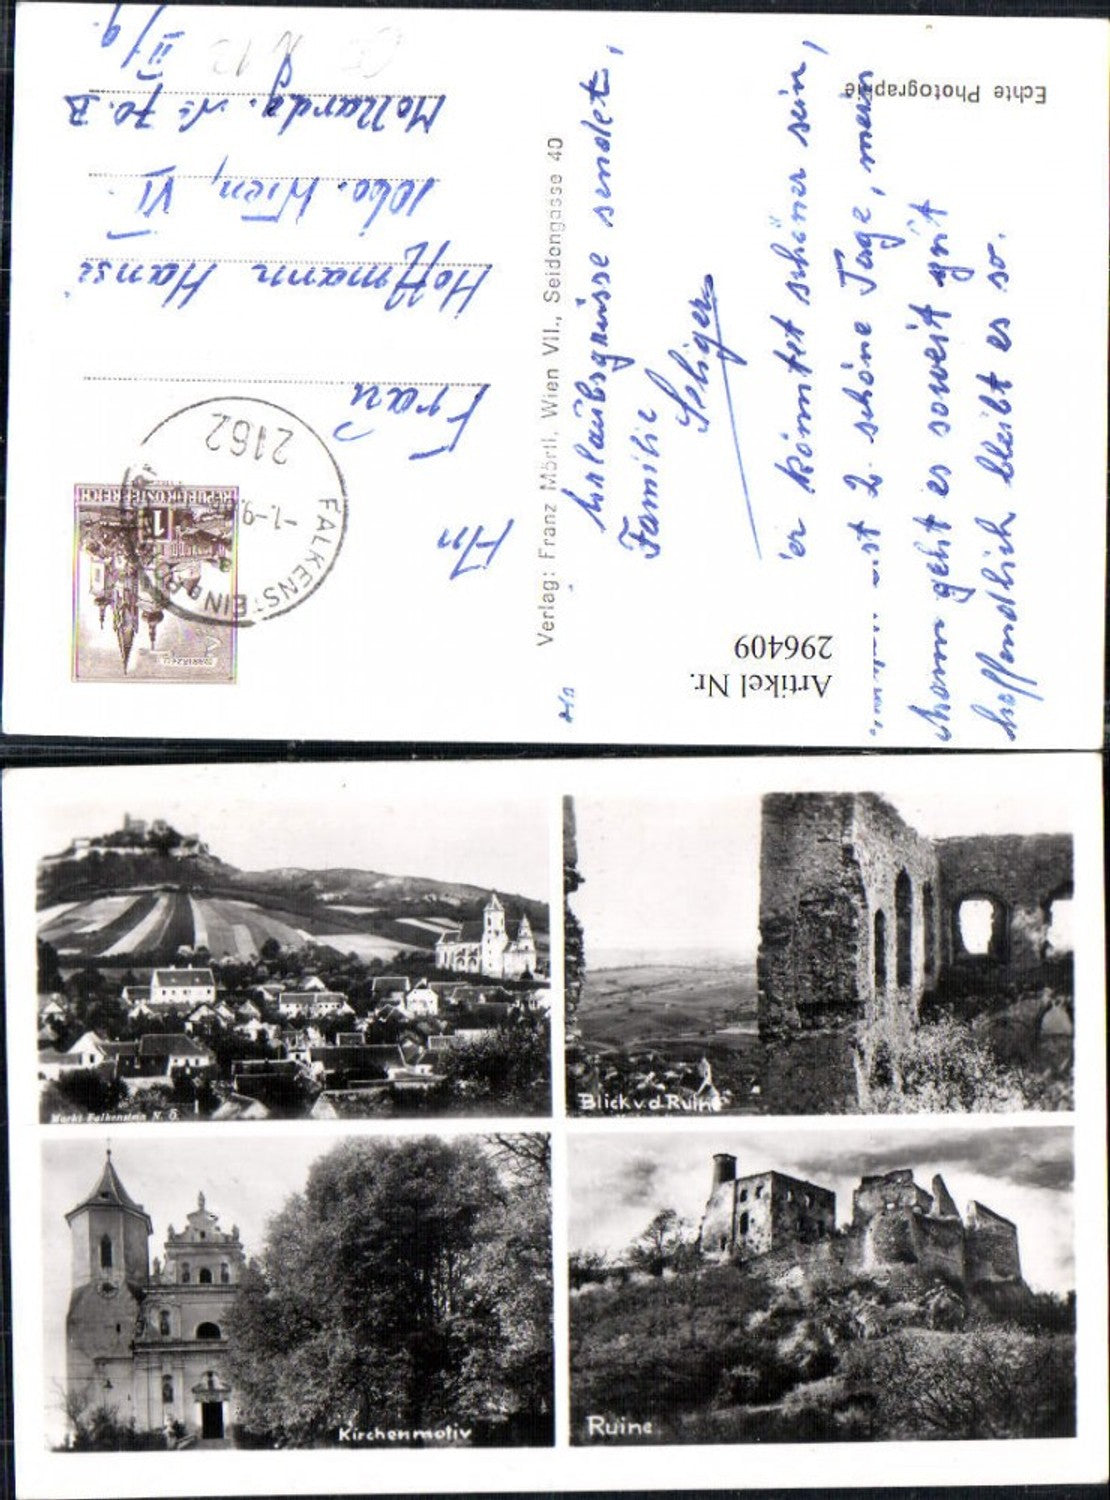 Echte Photographie
Urlaubsgrüsse sendet,
Familie
Seliger
er könnte schöner sein,
ist 2 schöne Tage, mein
Mann geht es soweit gut
hoffendlich bleibt es so.
Verlag: Franz Mörtl, Wien VII., Seidengasse 40
Artikel Nr.
296409
An
Frau
Hoffmann Hansi
1060. Wien, VI.
Mollardg. № 70.B
II/9.
2162
FALKENSTEIN
-1.-9.
REPUBLIK ÖSTERREICH
1
MARIAZELL
Markt Falkenstein N. Ö.
Blick v. d. Ruine
Kirchenmotiv
Ruine